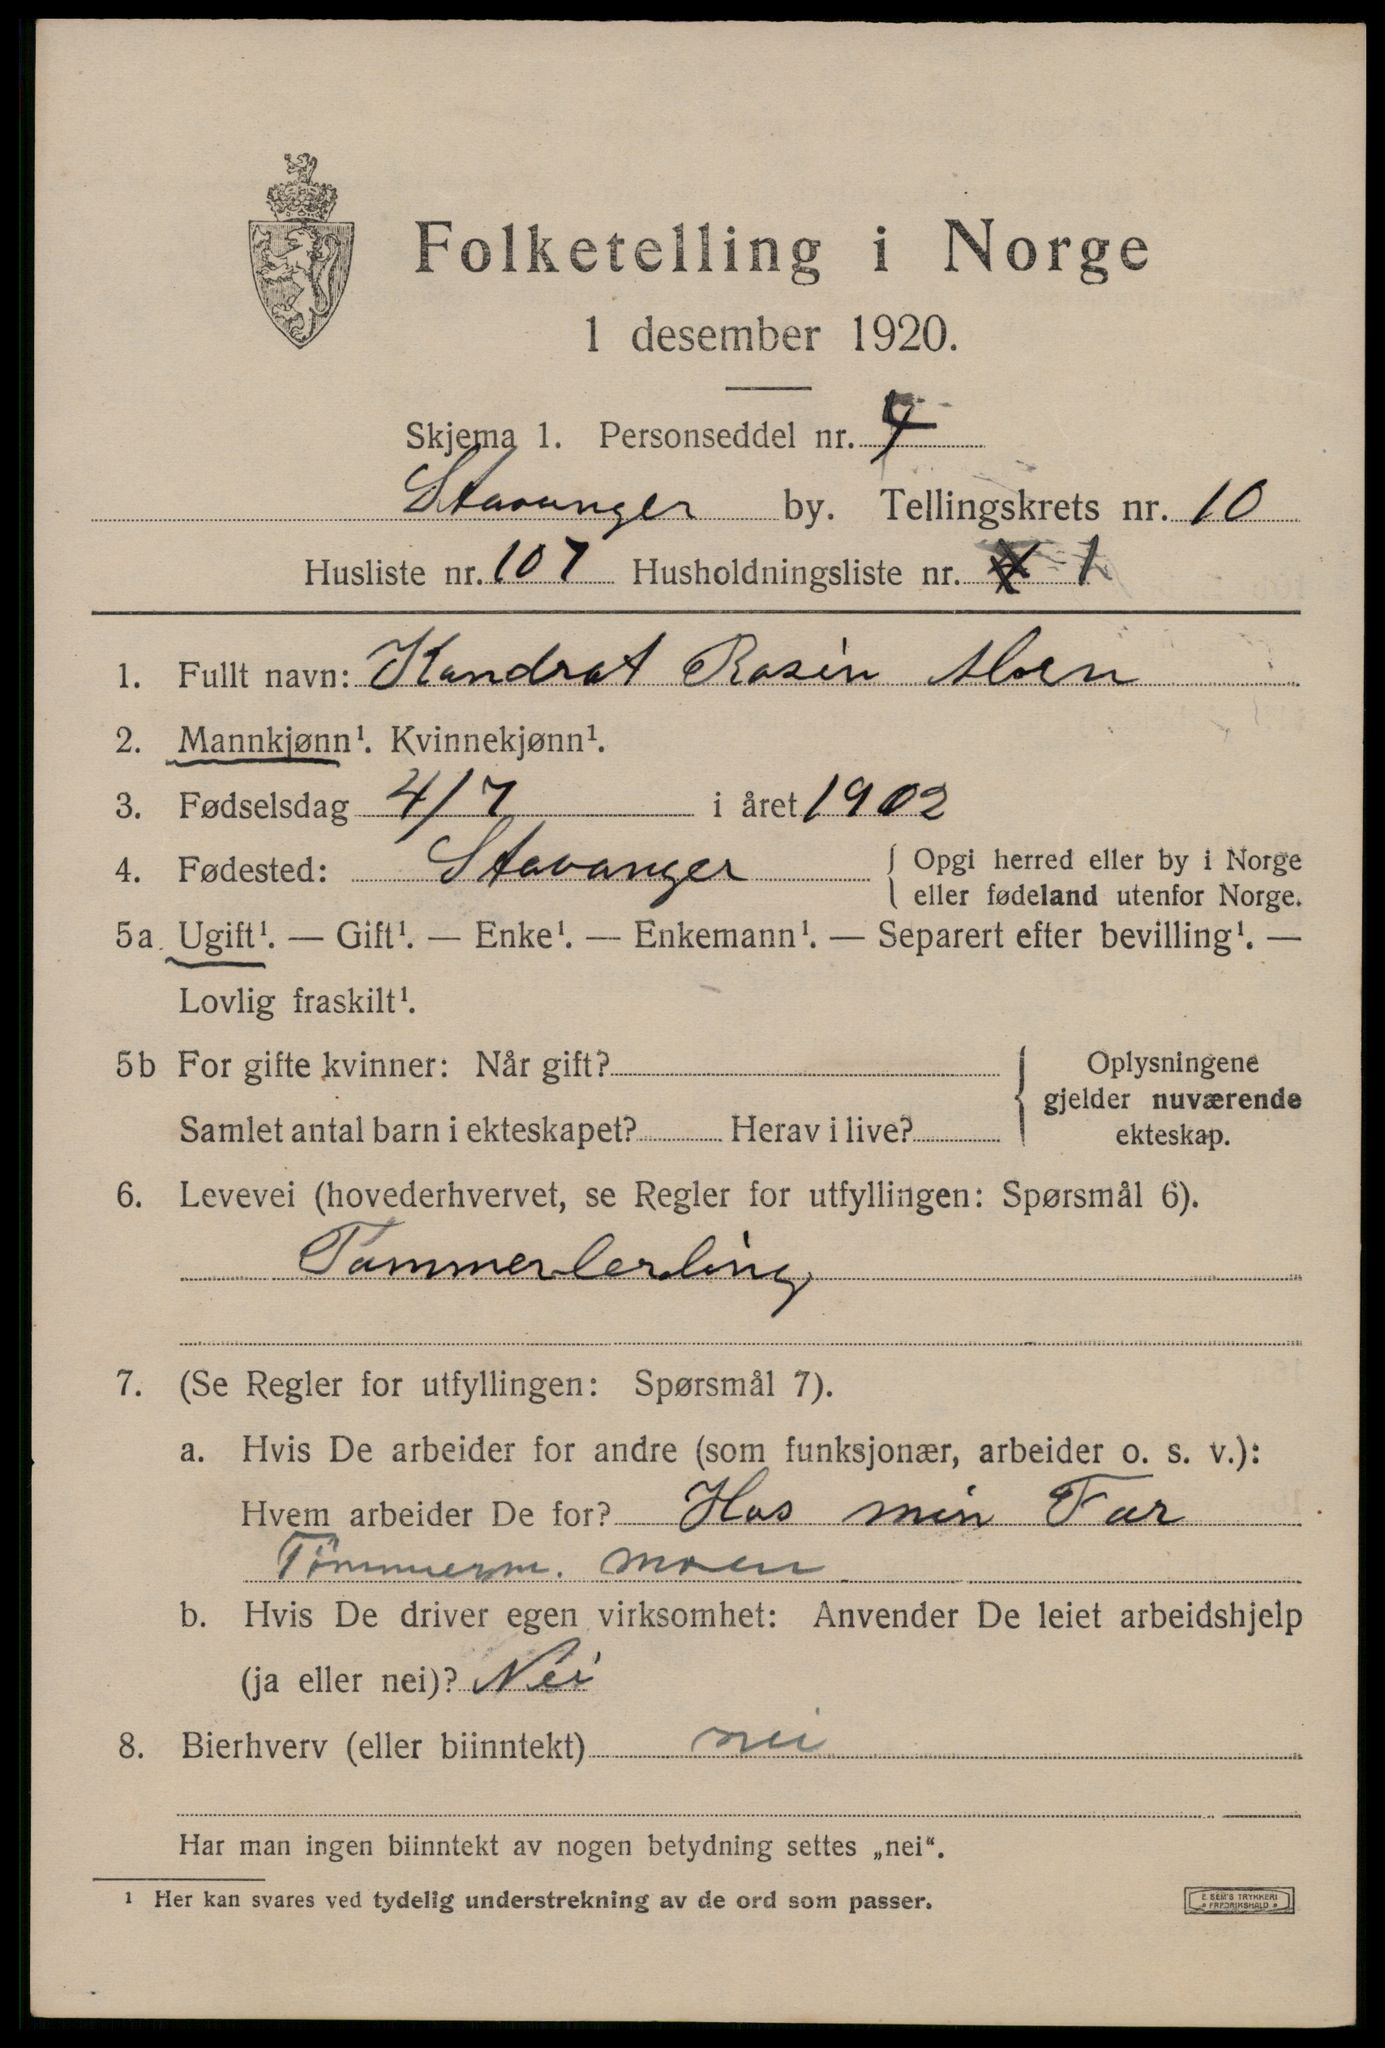 Folketelling i Norge
1 desember 1920.
Skjema 1. Personseddel nr. 4
Stavanger by. Tellingskrets nr. 10
Husliste nr. 107 Husholdningsliste nr. 1
1. Fullt navn: Kondrat Rasin Moen
2. Mannkjønn¹. Kvinnekjønn¹.
3. Fødselsdag 4/7 i året 1902
4. Fødested: Stavanger { Opgi herred eller by i Norge
eller fødeland utenfor Norge.
5a Ugift¹. — Gift¹. — Enke¹. — Enkemann¹. — Separert efter bevilling¹. —
Lovlig fraskilt¹.
5b For gifte kvinner: Når gift?
Samlet antal barn i ekteskapet? Herav i live?
Oplysningene
gjelder nuværende
ekteskap.
6. Levevei (hovederhvervet, se Regler for utfyllingen: Spørsmål 6).
Tommerlerling
7. (Se Regler for utfyllingen: Spørsmål 7).
a. Hvis De arbeider for andre (som funksjonær, arbeider o. s. v.):
Hvem arbeider De for? Hos min Far
Tömmerm. Moen
b. Hvis De driver egen virksomhet: Anvender De leiet arbeidshjelp
(ja eller nei)? Nei
8. Bierhverv (eller biinntekt) nei
Har man ingen biinntekt av nogen betydning settes „nei“.
¹ Her kan svares ved tydelig understrekning av de ord som passer.
E. SEM'S TRYKKERI
FREDRIKSHALD